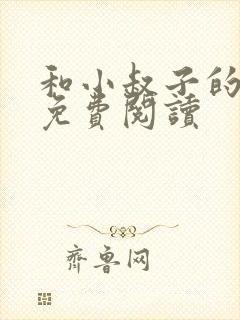 和小叔子的
免費閱讀
齊鲁网